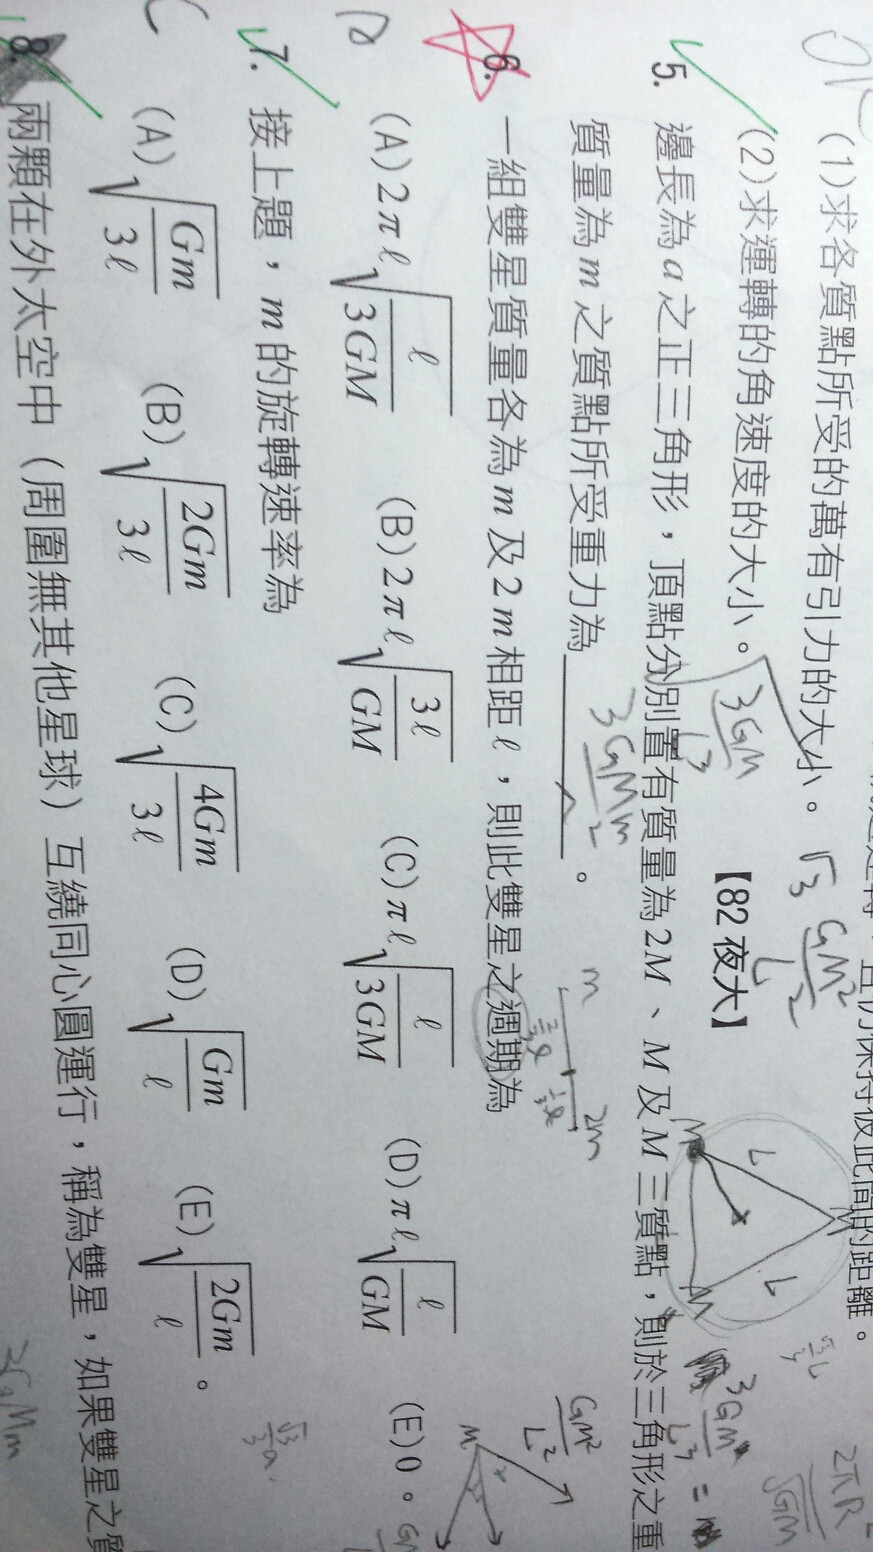 且仍保持彼此間的距離。
(1)求各質點所受的萬有引力的大小。 √3 GM²/L²
(2)求運轉的角速度的大小。 √(3GM/L³) 【82夜大】
5. 邊長為a之正三角形，頂點分別置有質量為2M、M及M三質點，則於三角形之重
質量為m之質點所受重力為＿＿＿＿。
6. 一組雙星質量各為m及2m相距ℓ，則此雙星之週期為
(A)2πℓ√(ℓ/3GM) (B)2πℓ√(3ℓ/GM) (C)πℓ√(ℓ/3GM) (D)πℓ√(ℓ/GM) (E)0。
7. 接上題，m的旋轉速率為
(A)√(Gm/3ℓ) (B)√(2Gm/3ℓ) (C)√(4Gm/3ℓ) (D)√(Gm/ℓ) (E)√(2Gm/ℓ)。
8. 兩顆在外太空中（周圍無其他星球）互繞同心圓運行，稱為雙星，如果雙星之質
M
M
M
L
L
m
2m
2/3ℓ
1/3ℓ
GM²/L²
M
C